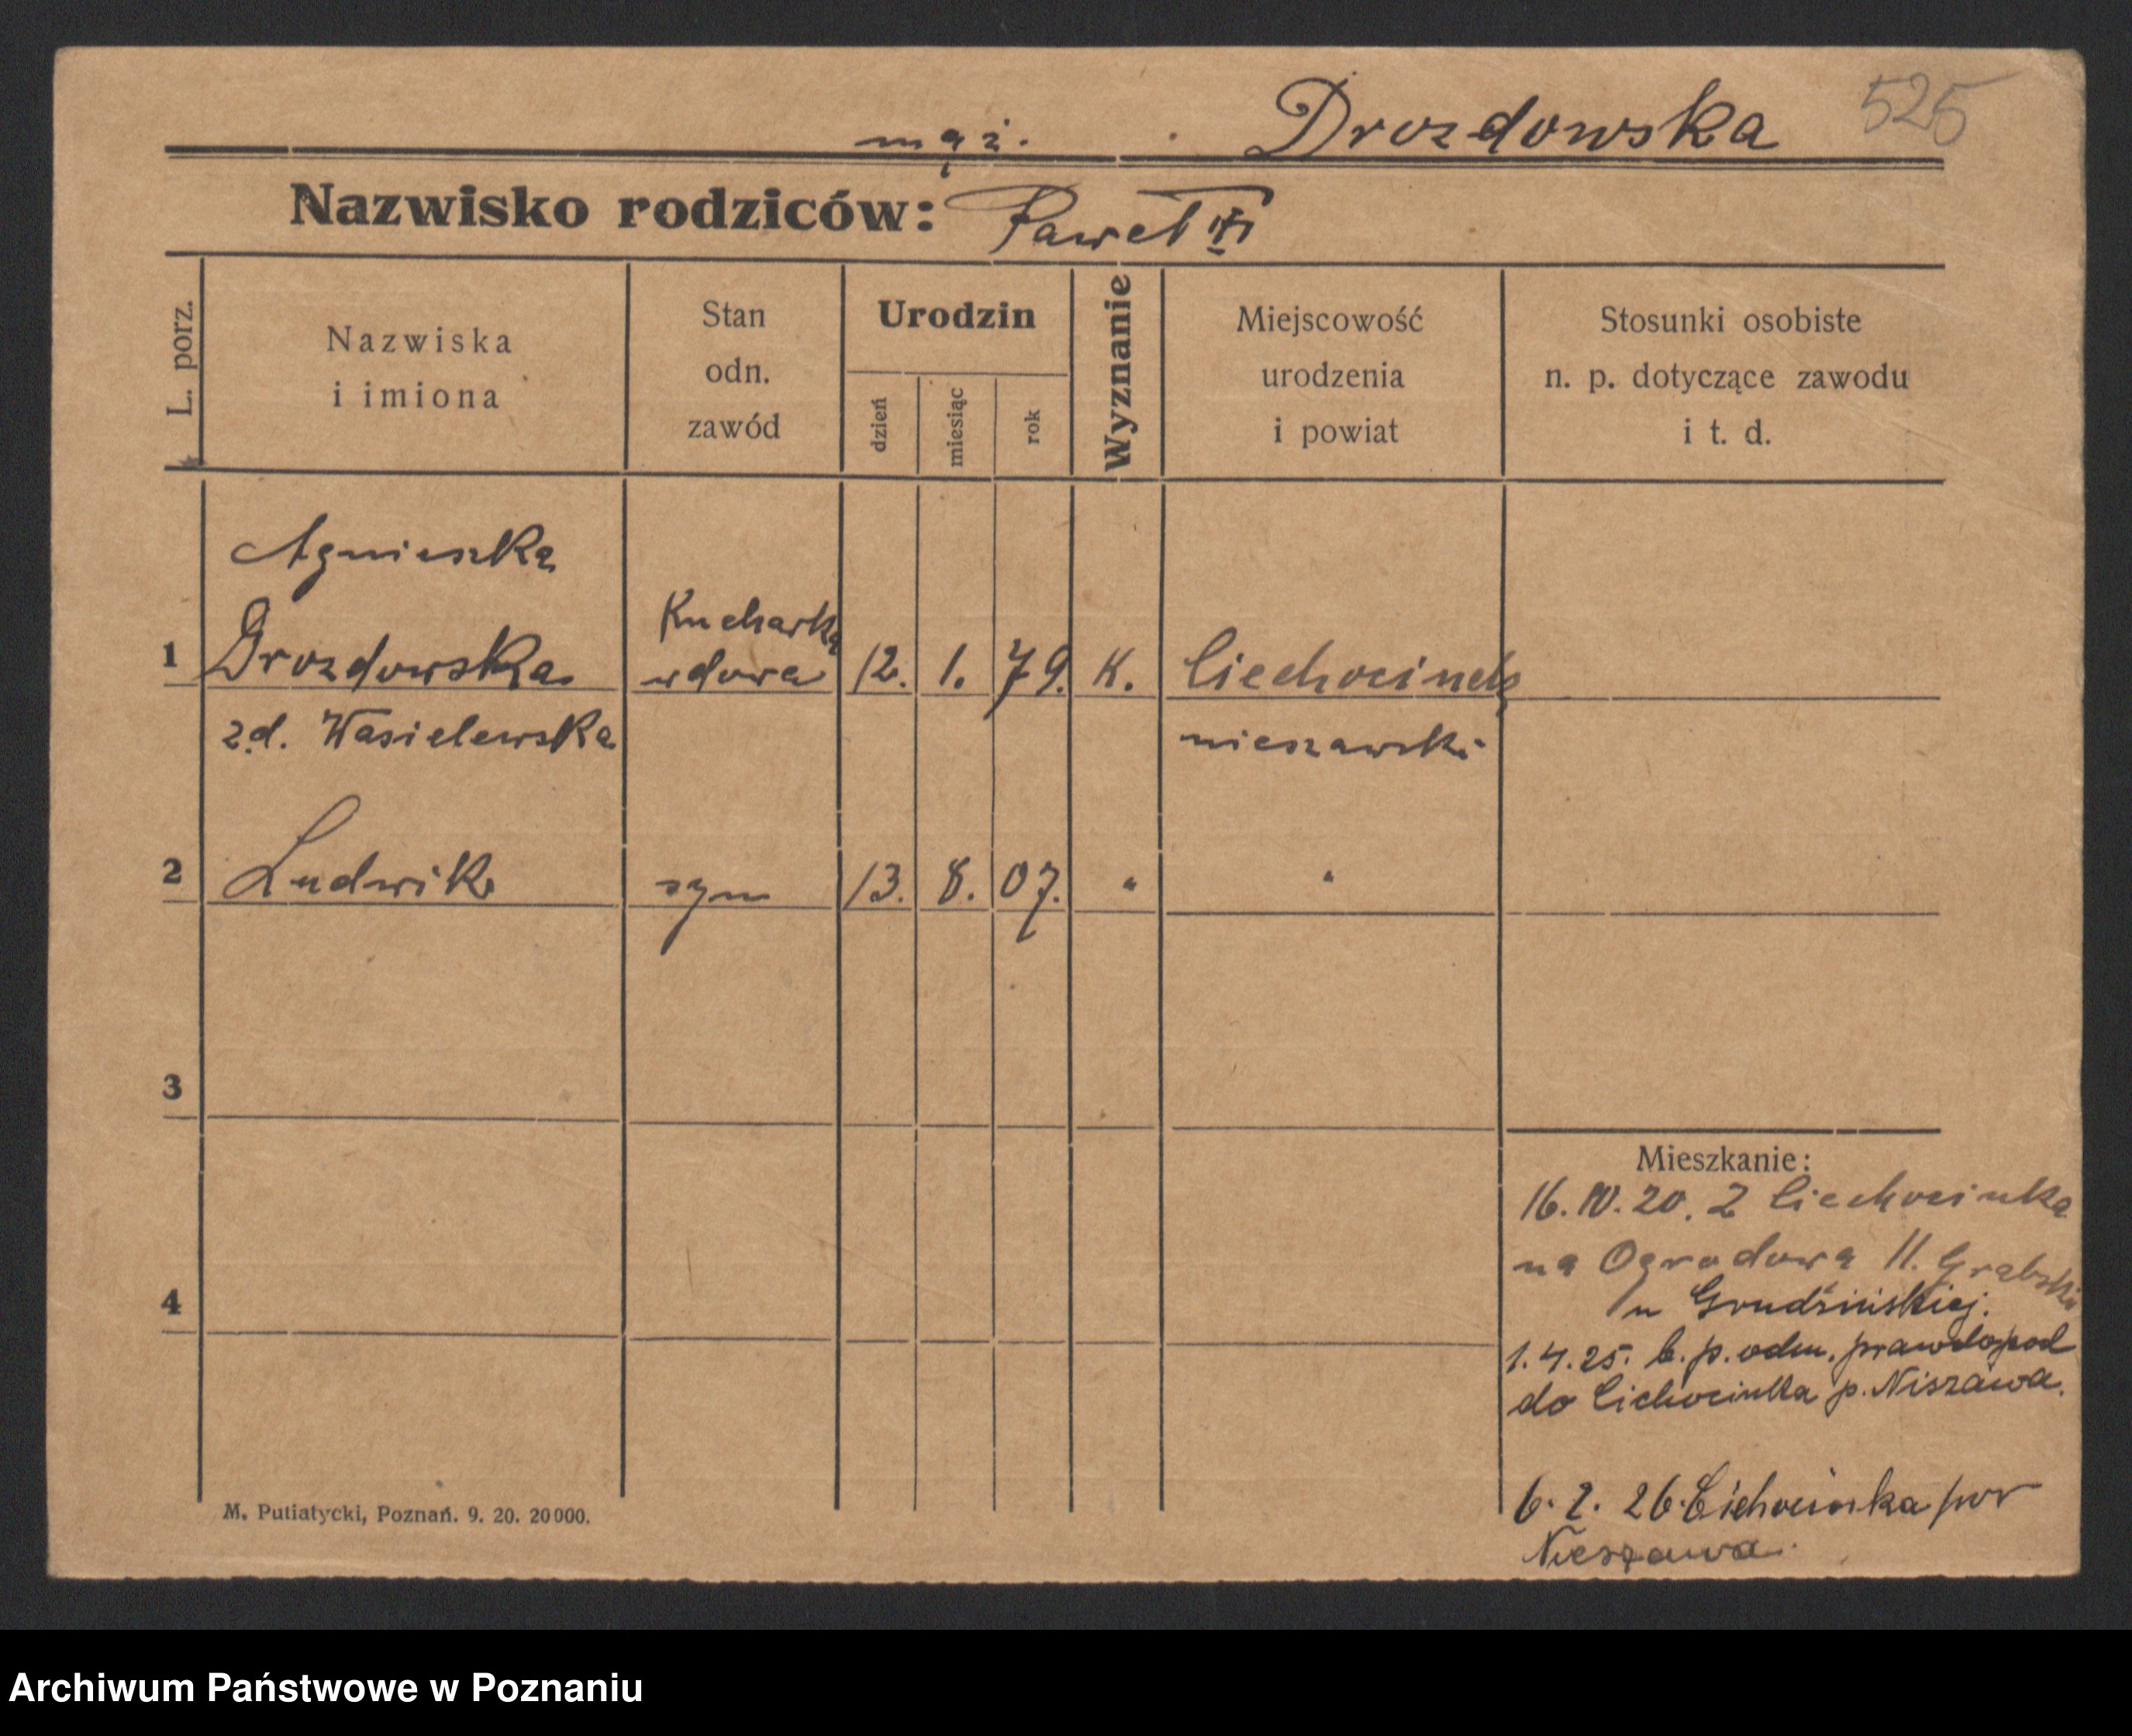 525
mąż. Drozdowska
Nazwisko rodziców: Paweł
L. porz.
Nazwiska
i imiona
Stan
odn.
zawód
Urodzin
dzień
miesiąc
rok
Wyznanie
Miejscowość
urodzenia
i powiat
Stosunki osobiste
n. p. dotyczące zawodu
i t. d.
Agnieszka
Kucharka
1 Drozdowska wdowa 12. 1. 79. K. Ciechocinek
zd. Wasielewska nieszawski
2 Ludwik syn 13. 8. 07. " "
3
4
Mieszkanie:
16. IV. 20. z Ciechocinka
na Ogrodowa 11.
u Grudzińskiej.
1.4.25. b. p. odm. prawdopod
do Cichocinka p. Niszawa.
6. 2. 26. Cichocinka pow
Nieszawa.
M. Putiatycki, Poznań. 9. 20. 20000.
Archiwum Państwowe w Poznaniu